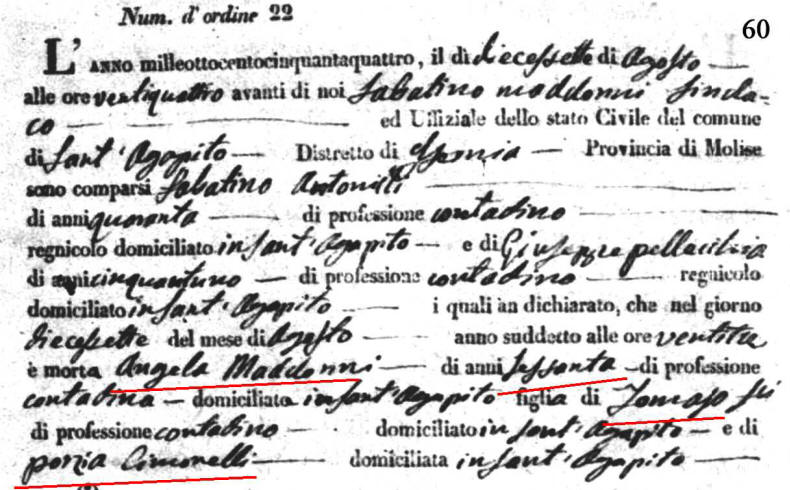 Num. d'ordine 22
60
L'ANNO milleottocentocinquantaquattro, il dì diecessette di Agosto
alle ore ventiquattro avanti di noi Sabatino Maddonni Sinda-
co ed Uffiziale dello stato Civile del comune
di Sant'Agapito Distretto di Isernia Provincia di Molise
sono comparsi Sabatino Antonilli
di anni quaranta di professione contadino
regnicolo domiciliato in Sant'Agapito e di Giuseppe
di anni cinquantuno di professione contadino regnicolo
domiciliato in Sant'Agapito i quali àn dichiarato, che nel giorno
diecessette del mese di Agosto anno suddetto alle ore ventitre
è morta Angela Maddonni di anni sessanta di professione
contadina domiciliata in Sant'Agapito figlia di Tomaso
di professione contadino domiciliato in Sant'Agapito e di
Porzia Cimorelli domiciliata in Sant'Agapito